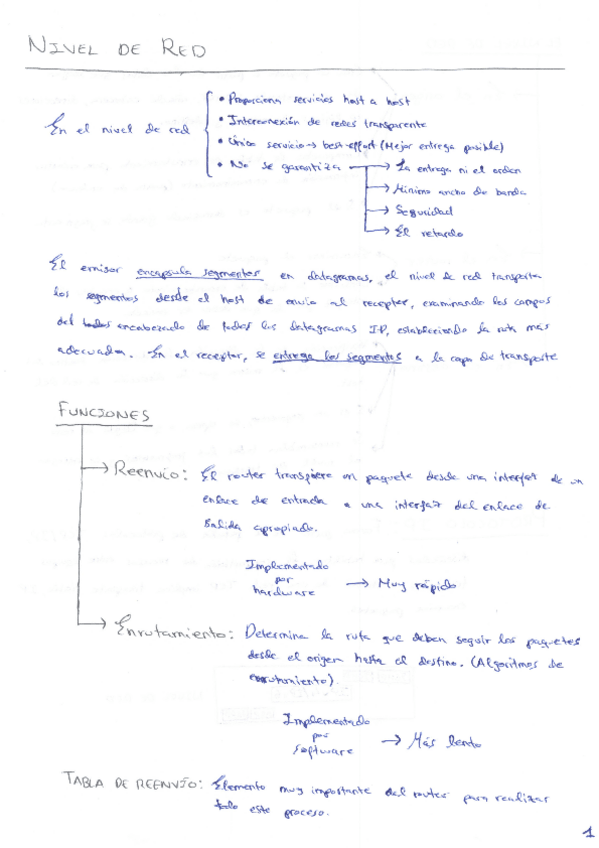 NIVEL DE RED
En el nivel de red
• Proporciona servicios host a host
• Interconexión de redes transparente
• Único servicio → best-effort (Mejor entrega posible)
• No se garantiza → La entrega ni el orden
→ Mínimo ancho de banda
→ Seguridad
→ El retardo
El emisor encapsula segmentos en datagramas, el nivel de red transporta
los segmentos desde el host de envío al receptor, examinando los campos
del encabezado de todos los datagramas IP, estableciendo la ruta más
adecuada. En el receptor, se entrega los segmentos a la capa de transporte
FUNCIONES
→ Reenvío: El router transfiere un paquete desde una interfaz de un
enlace de entrada a una interfaz del enlace de
salida apropiado.
Implementado
por
hardware → Muy rápido
→ Enrutamiento: Determina la ruta que deben seguir los paquetes
desde el origen hasta el destino. (Algoritmos de
enrutamiento).
Implementado
por
software → Más lento
TABLA DE REENVÍO: Elemento muy importante del router para realizar
todo este proceso.
1